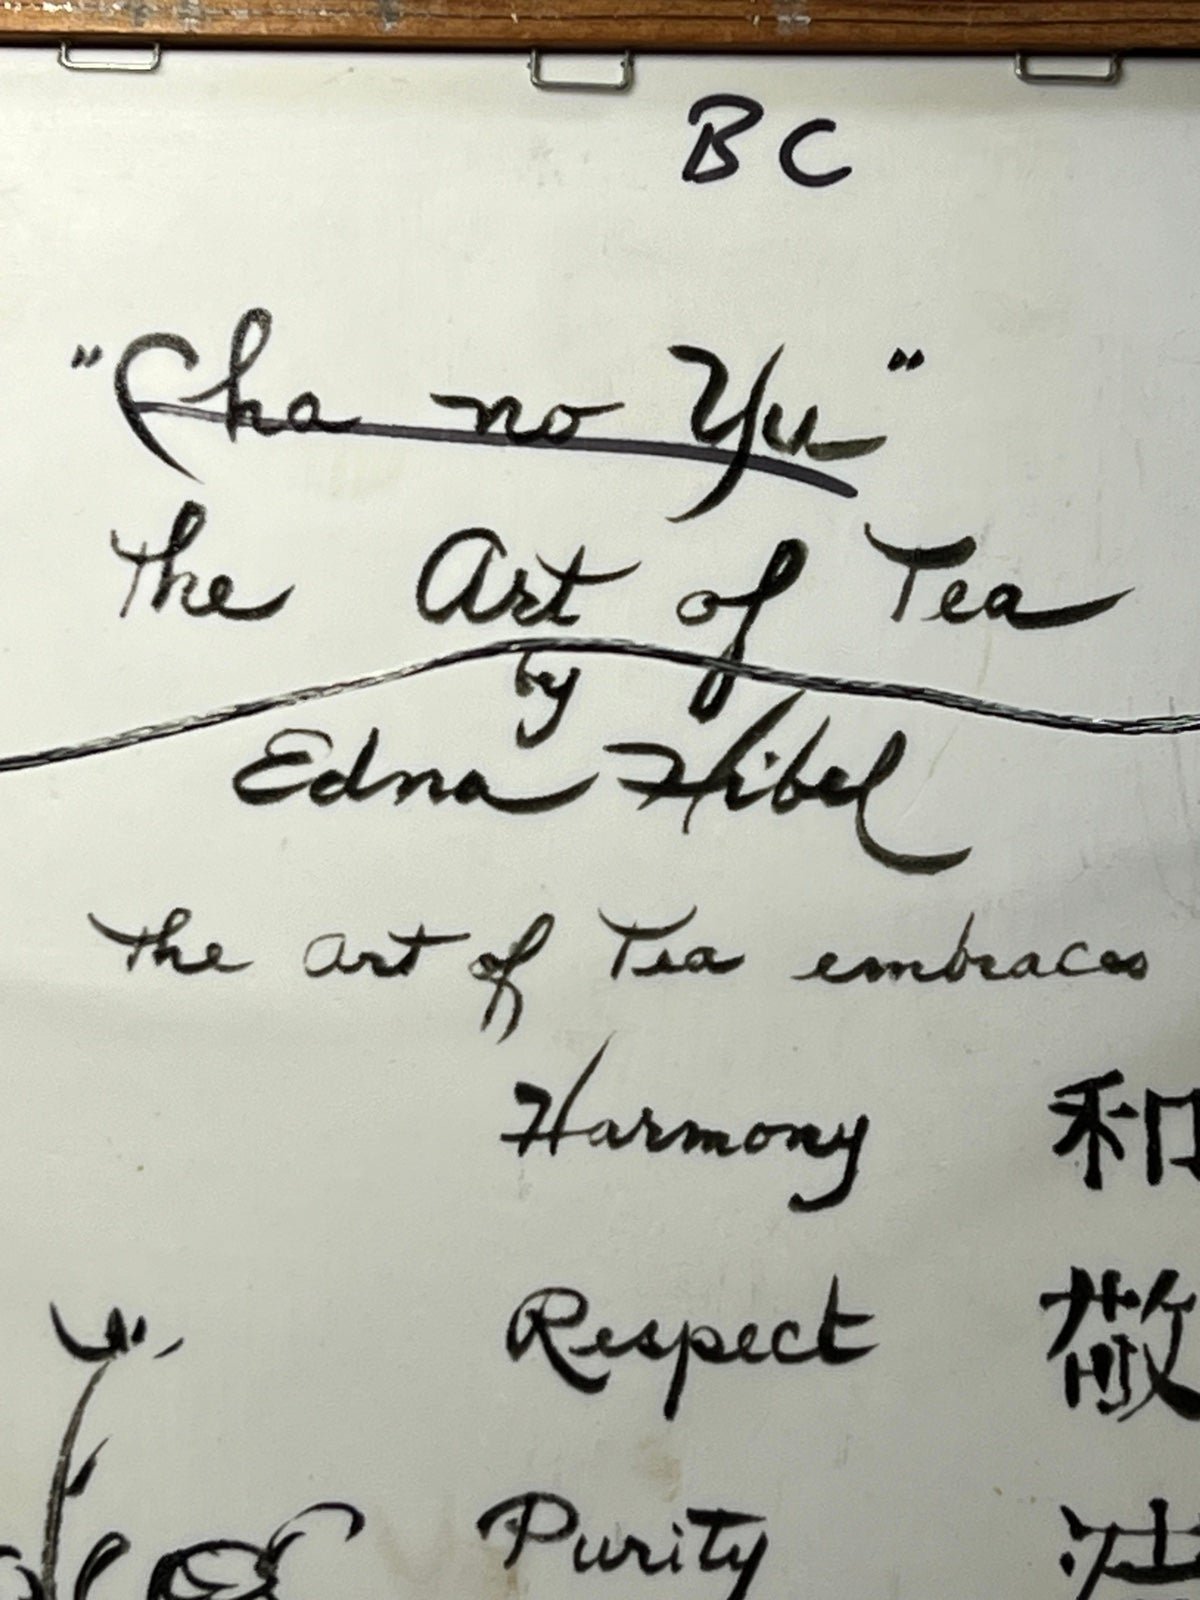 BC
"Cha no Yu"
The Art of Tea
by
Edna Hibel
The art of Tea embraces
Harmony 和
Respect 敬
Purity 清